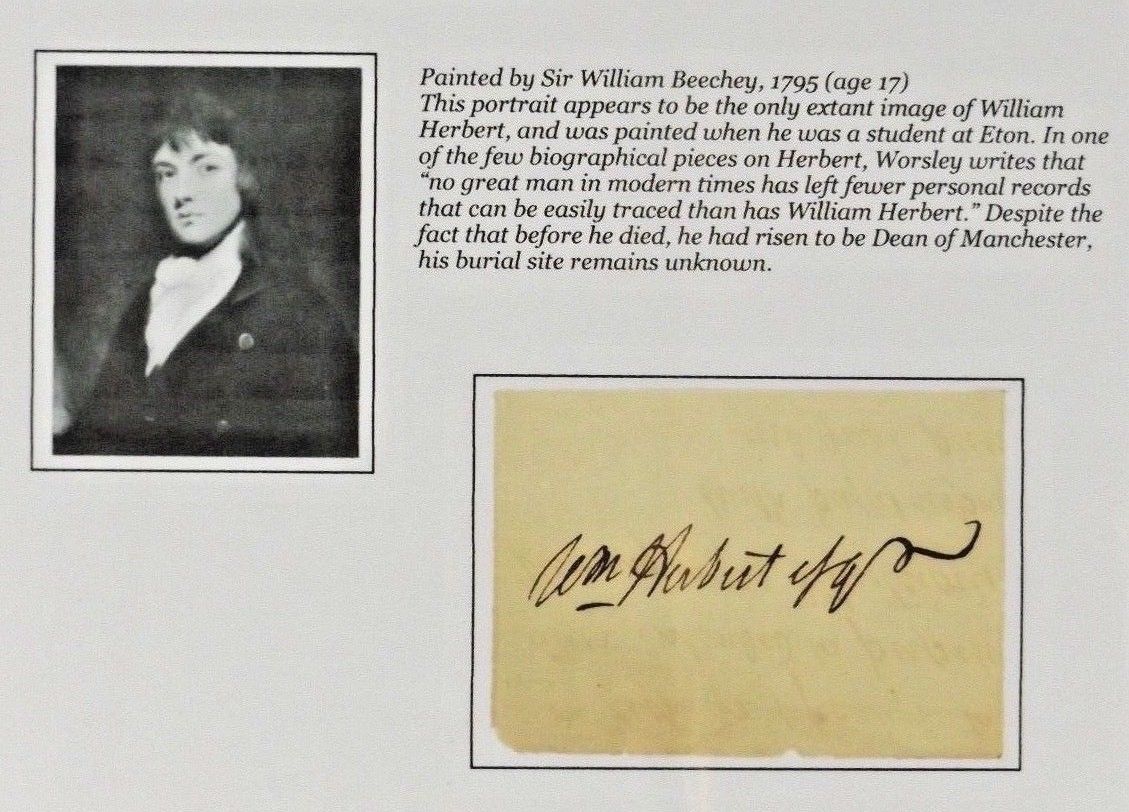 Painted by Sir William Beechey, 1795 (age 17)
This portrait appears to be the only extant image of William
Herbert, and was painted when he was a student at Eton. In one
of the few biographical pieces on Herbert, Worsley writes that
“no great man in modern times has left fewer personal records
that can be easily traced than has William Herbert.” Despite the
fact that before he died, he had risen to be Dean of Manchester,
his burial site remains unknown.
Wm Herbert esqr